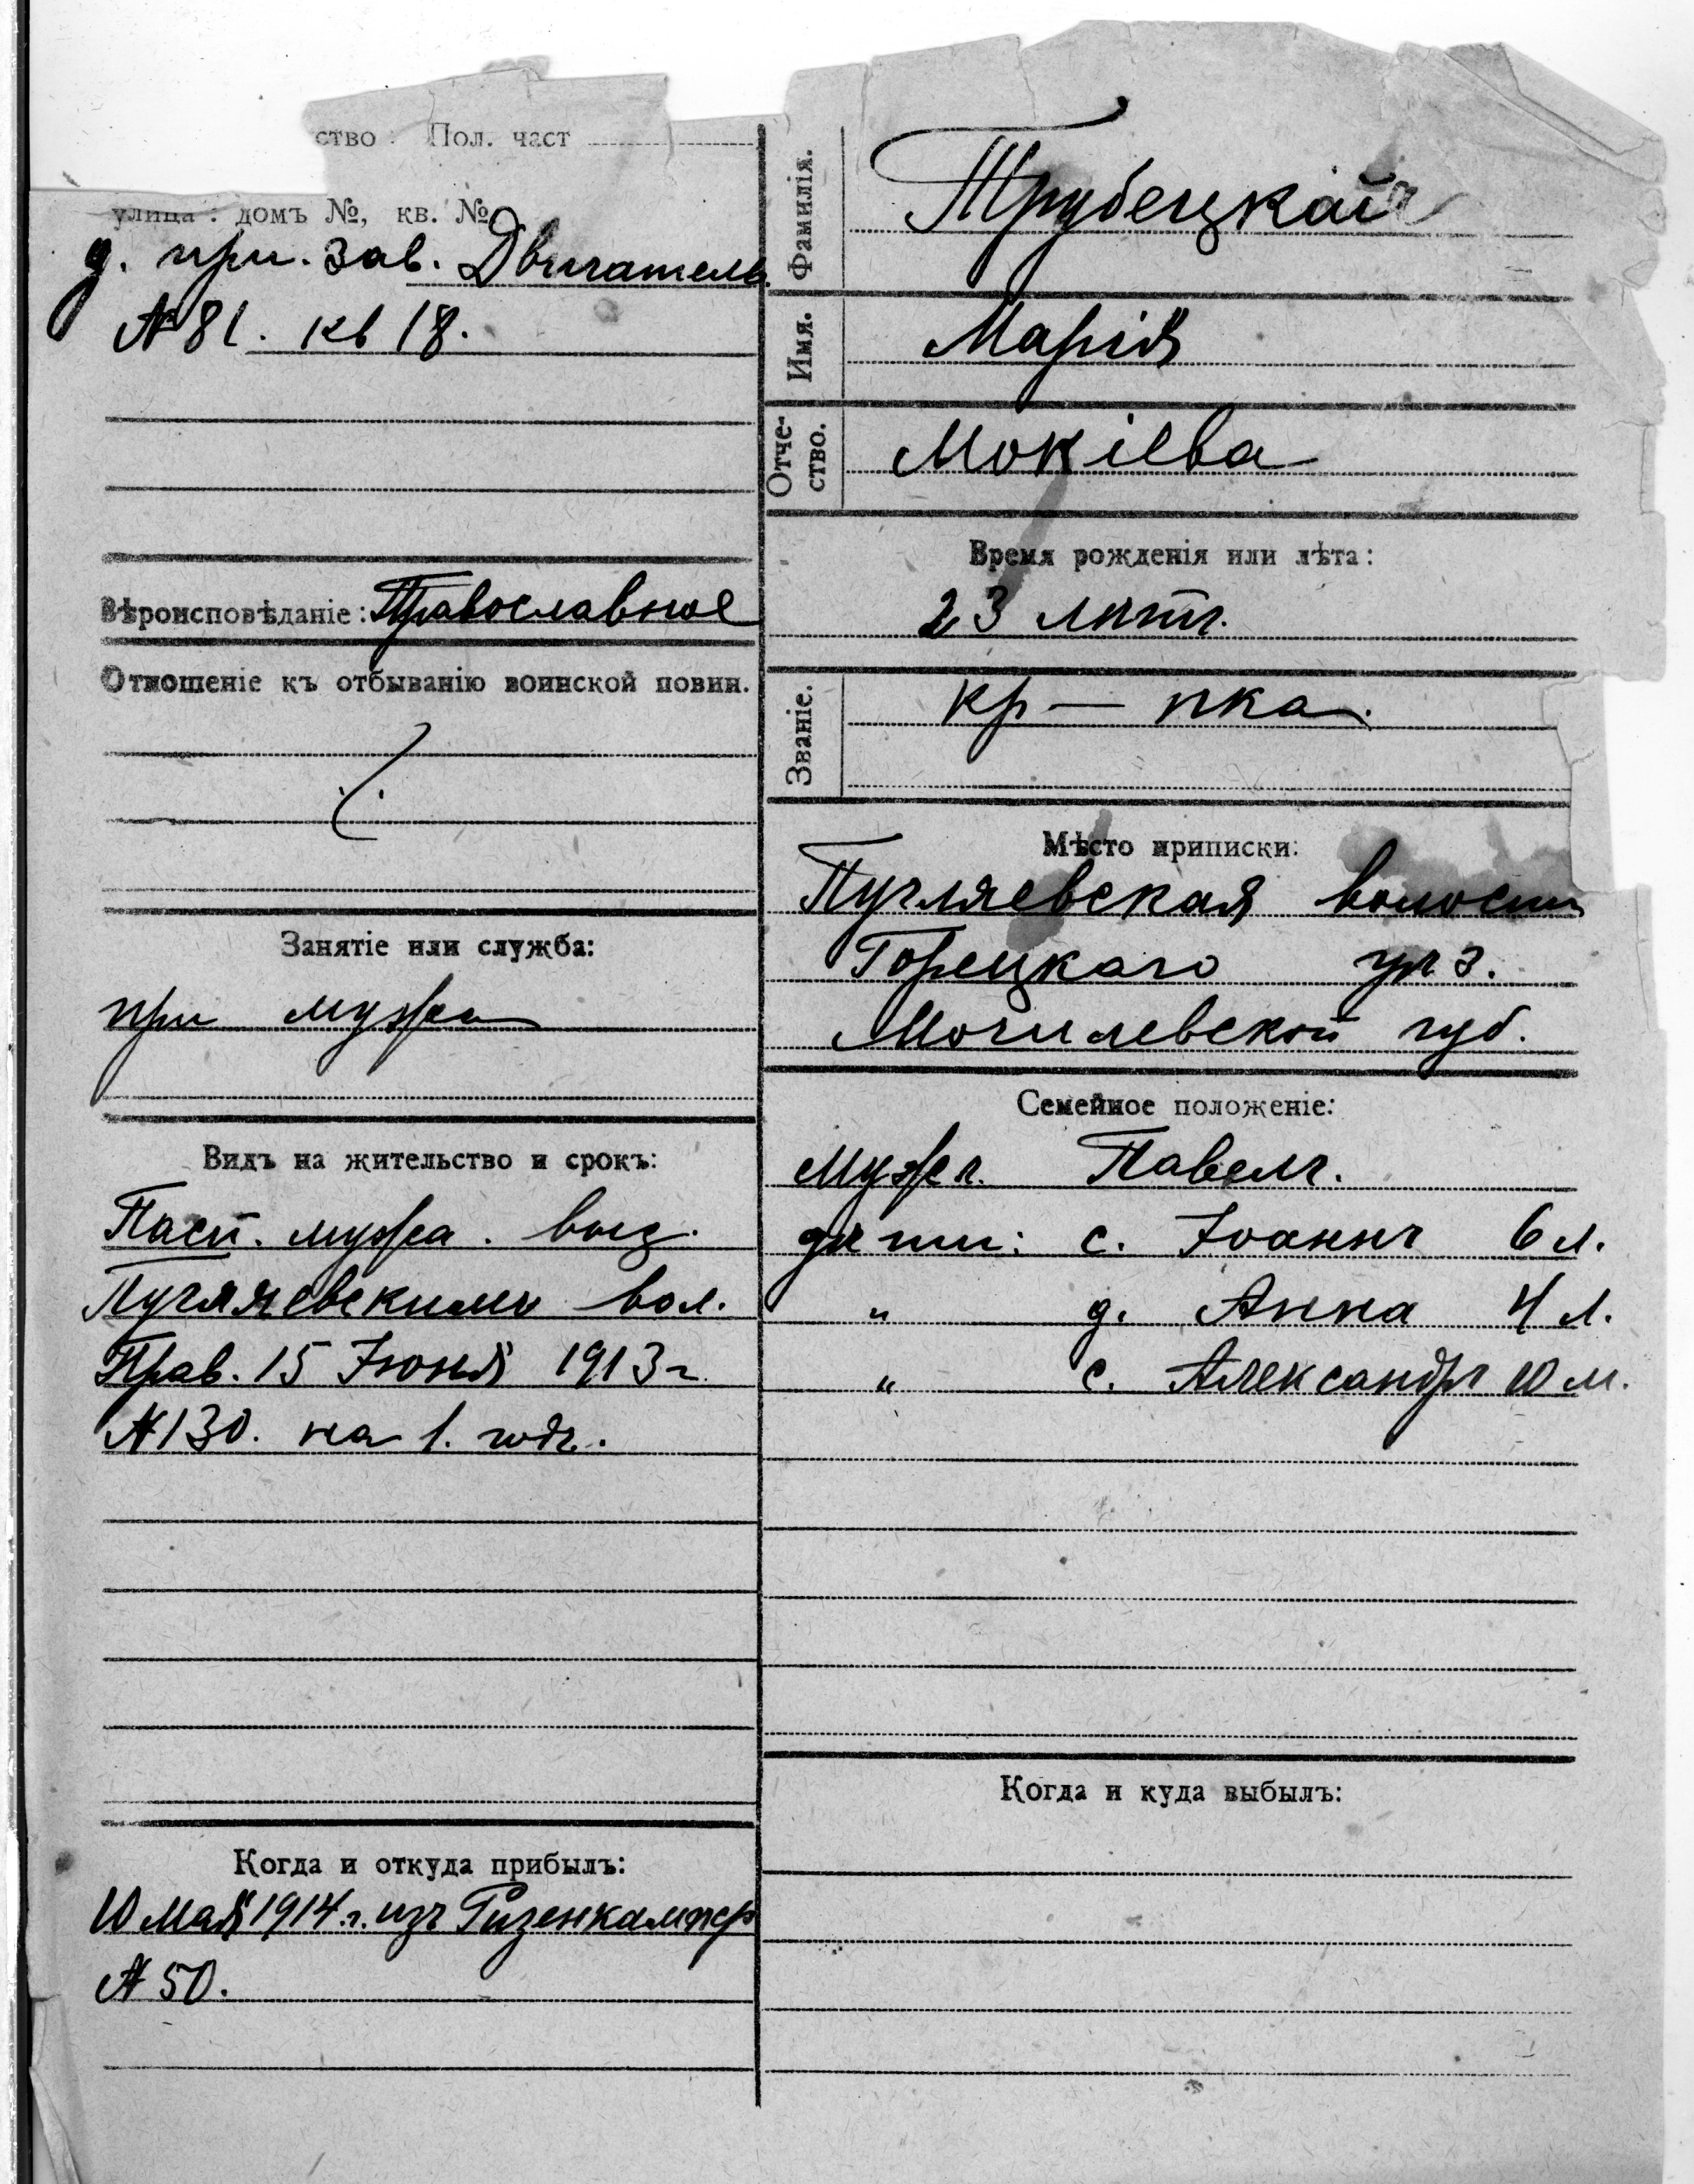 ство : Пол. част
улица : домъ №, кв. №
д. при. зав. Двигатель
№ 81. кв 18.
Вѣроисповѣданіе: Православное
Отношеніе къ отбыванію воинской повин.
Занятіе или служба:
при мужѣ
Видъ на жительство и срокъ:
Пасп. мужа. выд.
Пугляевскимъ вол.
Прав. 15 Іюня 1913 г.
№ 130. на 1. годъ.
Когда и откуда прибылъ:
10 Мая 1914 г. изъ Ризенкампф
№ 50.
Фамилія. Трубецкая
Имя. Марія
Отче-
ство. Мокіева
Время рожденія или лѣта:
23 лѣтъ.
Званіе. кр — нка.
Мѣсто приписки:
Пугляевская волости
Горецкаго уѣз.
Могилевской губ.
Семейное положеніе:
мужъ. Павелъ.
дѣти: с. Іоаннъ 6 л.
„ д. Анна 4 л.
„ с. Александръ 10 м.
Когда и куда выбылъ: